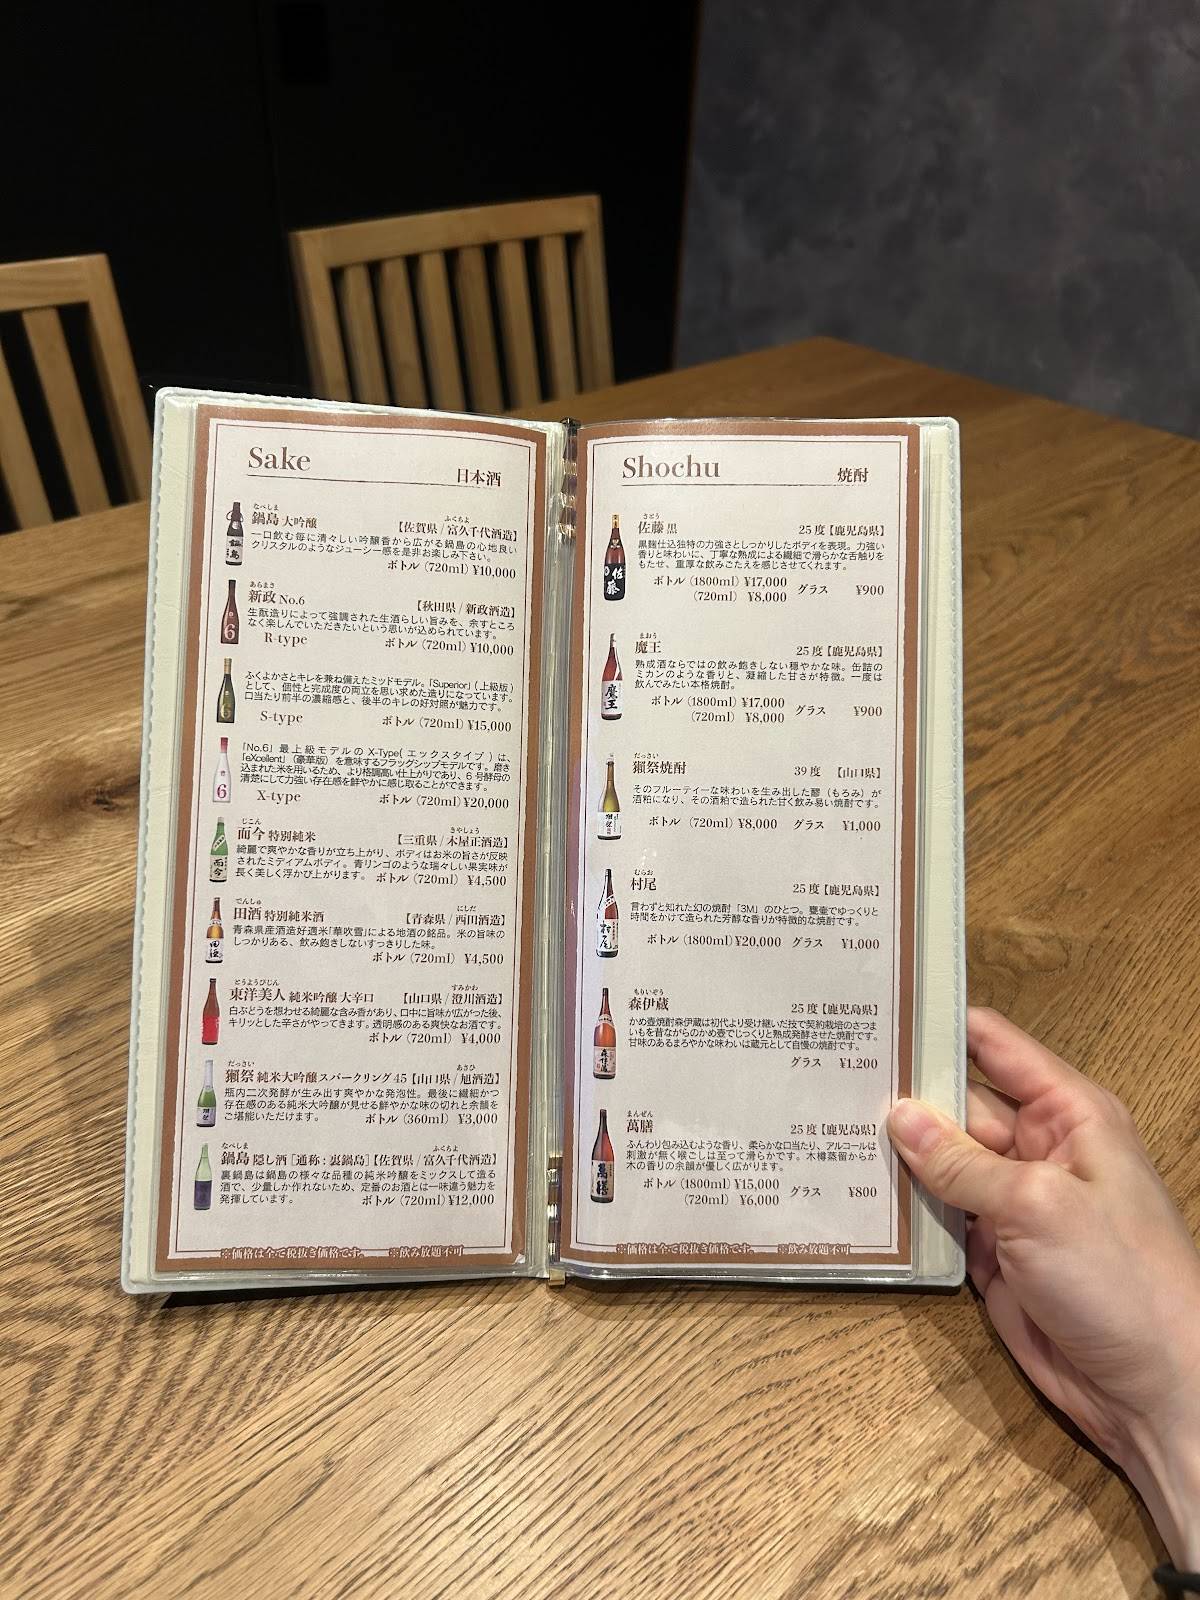 Sake
日本酒
なべしま
鍋島 大吟醸
ふくちよ
【佐賀県 / 富久千代酒造】
一口飲む毎に清々しい吟醸香から広がる鍋島の心地良い
クリスタルのようなジューシー感を是非お楽しみ下さい。
ボトル (720ml) ¥10,000
あらまさ
新政 No.6
【秋田県 / 新政酒造】
生酛造りによって強調された生酒らしい旨みを、余すところ
なく楽しんでいただきたいという思いが込められています。
R-type ボトル (720ml) ¥10,000
ふくよかさとキレを兼ね備えたミッドモデル。「Superior」( 上級版 )
として、個性と完成度の両立を思い求めた造りになっています。
口当たり前半の濃縮感と、後半のキレの好対照が魅力です。
S-type ボトル (720ml) ¥15,000
「No.6」最上級モデルの X-Type( エックスタイプ ) は、
「eXcellent」（豪華版）を意味するフラッグシップモデルです。磨き
込まれた米を用いるため、より格調高い仕上がりであり、6 号酵母の
清楚にして力強い存在感を鮮やかに感じ取ることができます。
X-type ボトル (720ml) ¥20,000
じこん
而今 特別純米
きやしょう
【三重県 / 木屋正酒造】
綺麗で爽やかな香りが立ち上がり、ボディはお米の旨さが反映
されたミディアムボディ。青リンゴのような瑞々しい果実味が
長く美しく浮かび上がります。 ボトル (720ml) ¥4,500
でんしゅ
田酒 特別純米酒
にしだ
【青森県 / 西田酒造】
青森県産酒造好適米「華吹雪」による地酒の銘品。米の旨味の
しっかりある、飲み飽きしないすっきりした味。
ボトル (720ml) ¥4,500
とうようびじん
東洋美人 純米吟醸 大辛口
すみかわ
【山口県 / 澄川酒造】
白ぶどうを想わせる綺麗な含み香があり、口中に旨味が広がった後、
キリッとした辛さがやってきます。透明感のある爽快なお酒です。
ボトル (720ml) ¥4,000
だっさい
獺祭 純米大吟醸 スパークリング 45
あさひ
【山口県 / 旭酒造】
瓶内二次発酵が生み出す爽やかな発泡性。最後に繊細かつ
存在感のある純米大吟醸が見せる鮮やかな味の切れと余韻を
ご堪能いただけます。 ボトル (360ml) ¥3,000
なべしま
鍋島 隠し酒 [ 通称 : 裏鍋島 ]
ふくちよ
【佐賀県 / 富久千代酒造】
裏鍋島は鍋島の様々な品種の純米吟醸をミックスして造る
酒で、少量しか作れないため、定番のお酒とは一味違う魅力を
発揮しています。 ボトル (720ml) ¥12,000
※価格は全て税抜き価格です。 ※飲み放題不可
Shochu
焼酎
さとう
佐藤 黒 25 度【鹿児島県】
黒麹仕込独特の力強さとしっかりしたボディを表現。力強い
香りと味わいに、丁寧な熟成による繊細で滑らかな舌触りを
もたせ、重厚な飲みごたえを感じさせてくれます。
ボトル (1800ml) ¥17,000
(720ml) ¥8,000 グラス ¥900
まおう
魔王 25 度【鹿児島県】
熟成酒ならではの飲み飽きしない穏やかな味。缶詰の
ミカンのような香りと、凝縮した甘さが特徴。一度は
飲んでみたい本格焼酎。
ボトル (1800ml) ¥17,000
(720ml) ¥8,000 グラス ¥900
だっさい
獺祭焼酎 39 度 【山口県】
そのフルーティーな味わいを生み出した醪（もろみ）が
酒粕になり、その酒粕で造られた甘く飲み易い焼酎です。
ボトル (720ml) ¥8,000 グラス ¥1,000
むらお
村尾 25 度【鹿児島県】
言わずと知れた幻の焼酎「3M」のひとつ。甕壷でゆっくりと
時間をかけて造られた芳醇な香りが特徴的な焼酎です。
ボトル (1800ml) ¥20,000 グラス ¥1,000
もりいぞう
森伊蔵 25 度【鹿児島県】
かめ壺焼酎森伊蔵は初代より受け継いだ技で契約栽培のさつま
いもを昔ながらのかめ壺でじっくりと熟成発酵させた焼酎です。
甘味のあるまろやかな味わいは蔵元として自慢の焼酎です。
グラス ¥1,200
まんぜん
萬膳 25 度【鹿児島県】
ふんわり包み込むような香り、柔らかな口当たり、アルコールは
刺激が無く喉ごしは至って滑らかです。木樽蒸留からか
木の香りの余韻が優しく広がります。
ボトル (1800ml) ¥15,000
(720ml) ¥6,000 グラス ¥800
※価格は全て税抜き価格です。 ※飲み放題不可